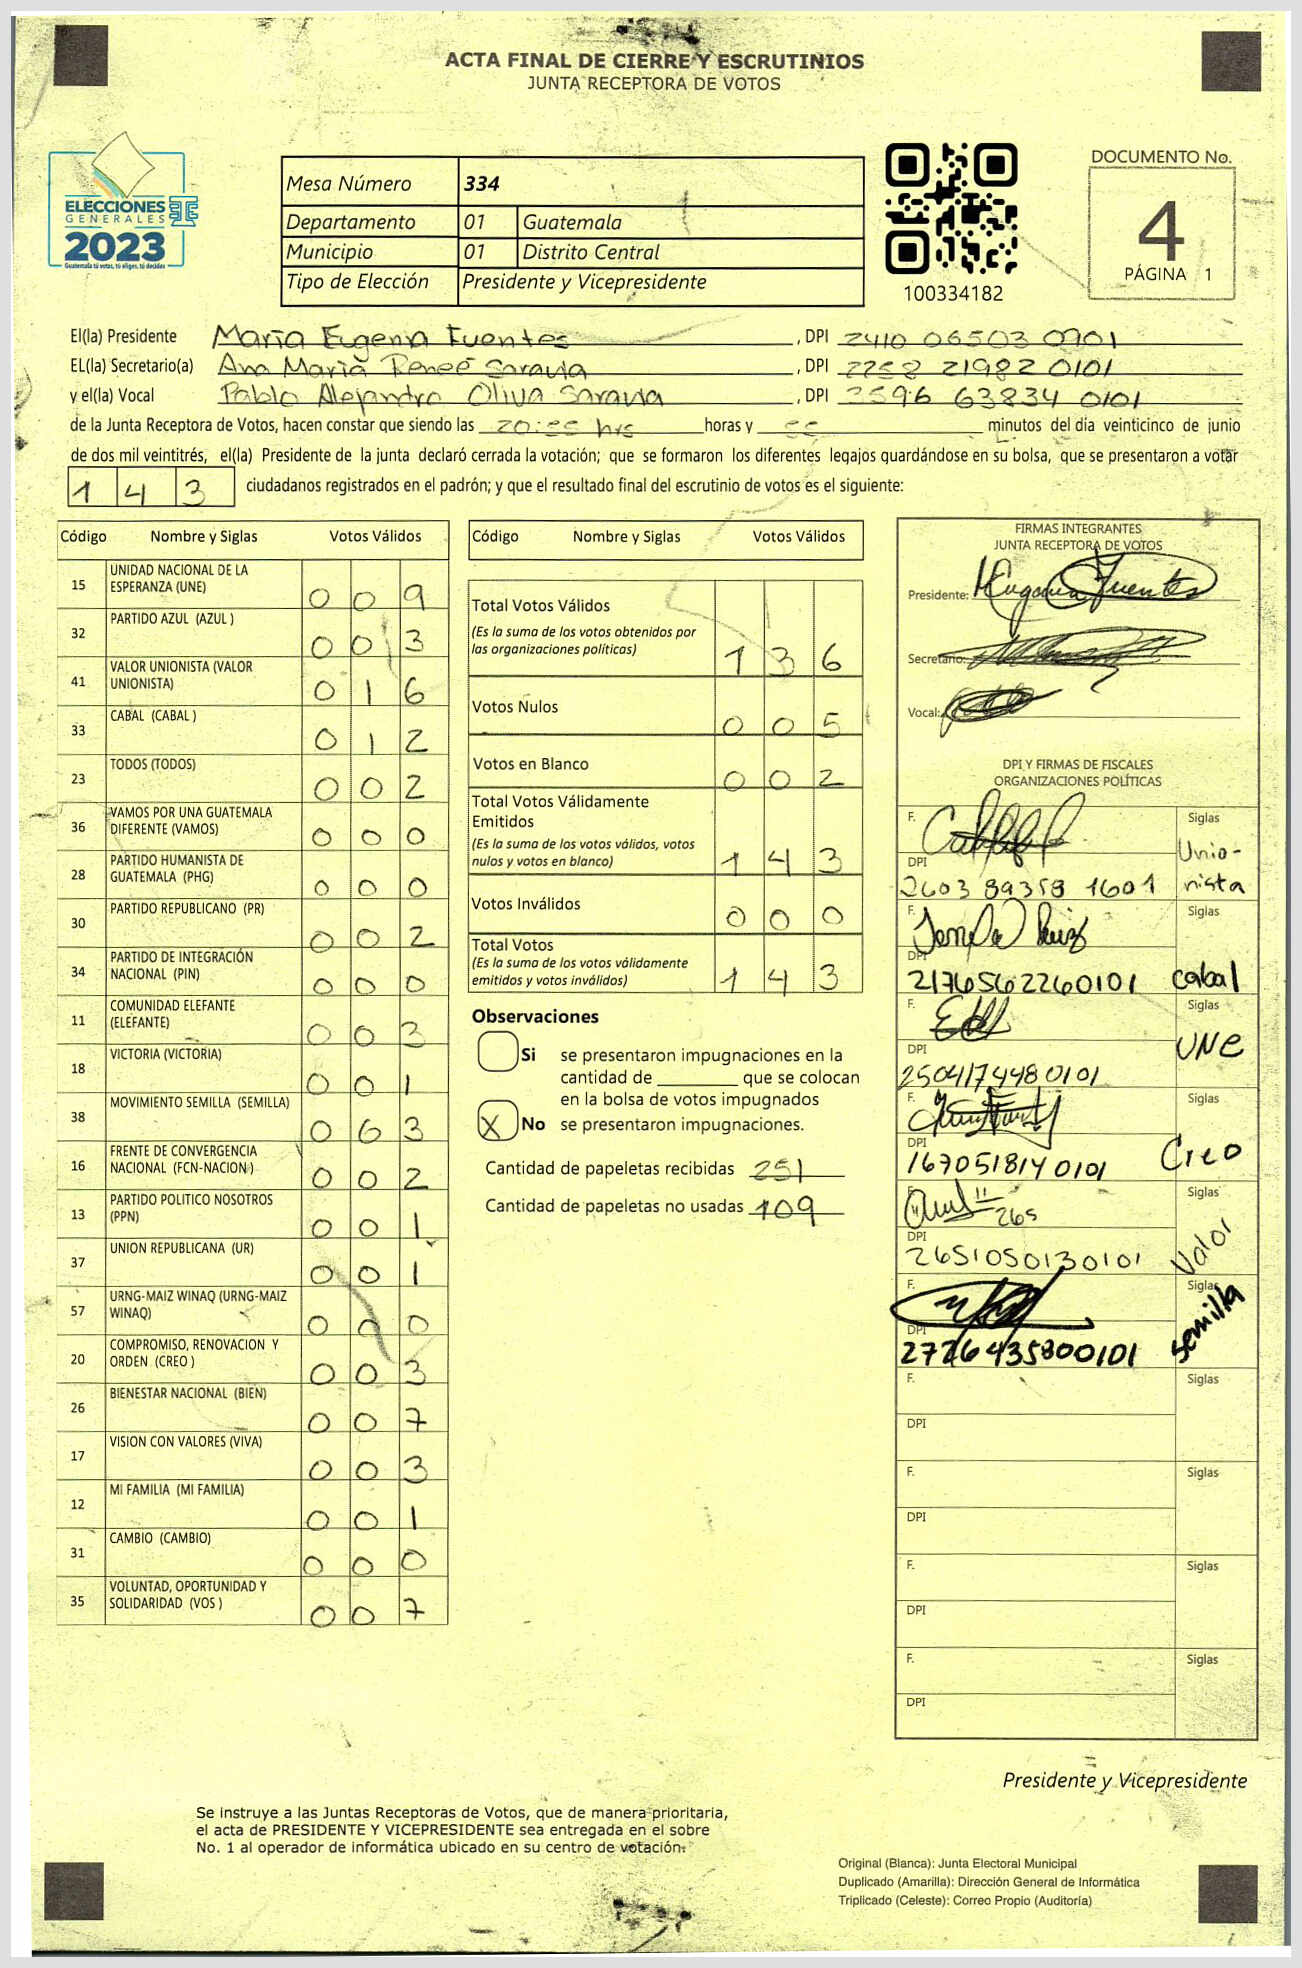 ACTA FINAL DE CIERRE Y ESCRUTINIOS
JUNTA RECEPTORA DE VOTOS
ELECCIONES
GENERALES
2023
Guatemala tú votas, tú eliges, tú decides
Mesa Número 334
Departamento 01 Guatemala
Municipio 01 Distrito Central
Tipo de Elección Presidente y Vicepresidente
100334182
DOCUMENTO No.
4
PÁGINA 1
El(la) Presidente María Eugenia Fuentes, DPI 2410 06503 0901
EL(la) Secretario(a) Ana María Reneé Saravia, DPI 2258 21982 0101
y el(la) Vocal Pablo Alejandro Oliva Saravia, DPI 3596 63834 0101
de la Junta Receptora de Votos, hacen constar que siendo las 20:55 hrs horas y 55 minutos del día veinticinco de junio
de dos mil veintitrés, el(la) Presidente de la junta declaró cerrada la votación; que se formaron los diferentes legajos guardándose en su bolsa, que se presentaron a votar
143 ciudadanos registrados en el padrón; y que el resultado final del escrutinio de votos es el siguiente:
Código Nombre y Siglas Votos Válidos
15 UNIDAD NACIONAL DE LA ESPERANZA (UNE) 009
32 PARTIDO AZUL (AZUL ) 003
41 VALOR UNIONISTA (VALOR UNIONISTA) 016
33 CABAL (CABAL ) 012
23 TODOS (TODOS) 002
36 VAMOS POR UNA GUATEMALA DIFERENTE (VAMOS) 000
28 PARTIDO HUMANISTA DE GUATEMALA (PHG) 000
30 PARTIDO REPUBLICANO (PR) 002
34 PARTIDO DE INTEGRACIÓN NACIONAL (PIN) 000
11 COMUNIDAD ELEFANTE (ELEFANTE) 003
18 VICTORIA (VICTORIA) 001
38 MOVIMIENTO SEMILLA (SEMILLA) 063
16 FRENTE DE CONVERGENCIA NACIONAL (FCN-NACION ) 002
13 PARTIDO POLITICO NOSOTROS (PPN) 001
37 UNION REPUBLICANA (UR) 001
57 URNG-MAIZ WINAQ (URNG-MAIZ WINAQ) 000
20 COMPROMISO, RENOVACION Y ORDEN (CREO ) 003
26 BIENESTAR NACIONAL (BIEN) 007
17 VISION CON VALORES (VIVA) 003
12 MI FAMILIA (MI FAMILIA) 001
31 CAMBIO (CAMBIO) 000
35 VOLUNTAD, OPORTUNIDAD Y SOLIDARIDAD (VOS ) 007
Código Nombre y Siglas Votos Válidos
Total Votos Válidos 136
(Es la suma de los votos obtenidos por
las organizaciones políticas)
Votos Nulos 005
Votos en Blanco 002
Total Votos Válidamente
Emitidos 143
(Es la suma de los votos válidos, votos
nulos y votos en blanco)
Votos Inválidos 000
Total Votos 143
(Es la suma de los votos válidamente
emitidos y votos inválidos)
Observaciones
Si se presentaron impugnaciones en la
cantidad de ________ que se colocan
en la bolsa de votos impugnados
X No se presentaron impugnaciones.
Cantidad de papeletas recibidas 251
Cantidad de papeletas no usadas 109
FIRMAS INTEGRANTES
JUNTA RECEPTORA DE VOTOS
Presidente: MEugenia Fuentes
Secretario:
Vocal:
DPI Y FIRMAS DE FISCALES
ORGANIZACIONES POLÍTICAS
F. Siglas
DPI Unio-
2603 89358 1601 nista
F. Siglas
DPI
2176562260101 cabal
F. Siglas
DPI UNE
2504174480101
F. Siglas
DPI
1670518140101 Creo
F. 265 Siglas
DPI
2651050130101 Valor
F. Siglas
DPI
2726435800101 Semilla
F. Siglas
DPI
F. Siglas
DPI
F. Siglas
DPI
F. Siglas
DPI
Presidente y Vicepresidente
Se instruye a las Juntas Receptoras de Votos, que de manera prioritaria,
el acta de PRESIDENTE Y VICEPRESIDENTE sea entregada en el sobre
No. 1 al operador de informática ubicado en su centro de votación.
Original (Blanca): Junta Electoral Municipal
Duplicado (Amarilla): Dirección General de Informática
Triplicado (Celeste): Correo Propio (Auditoría)